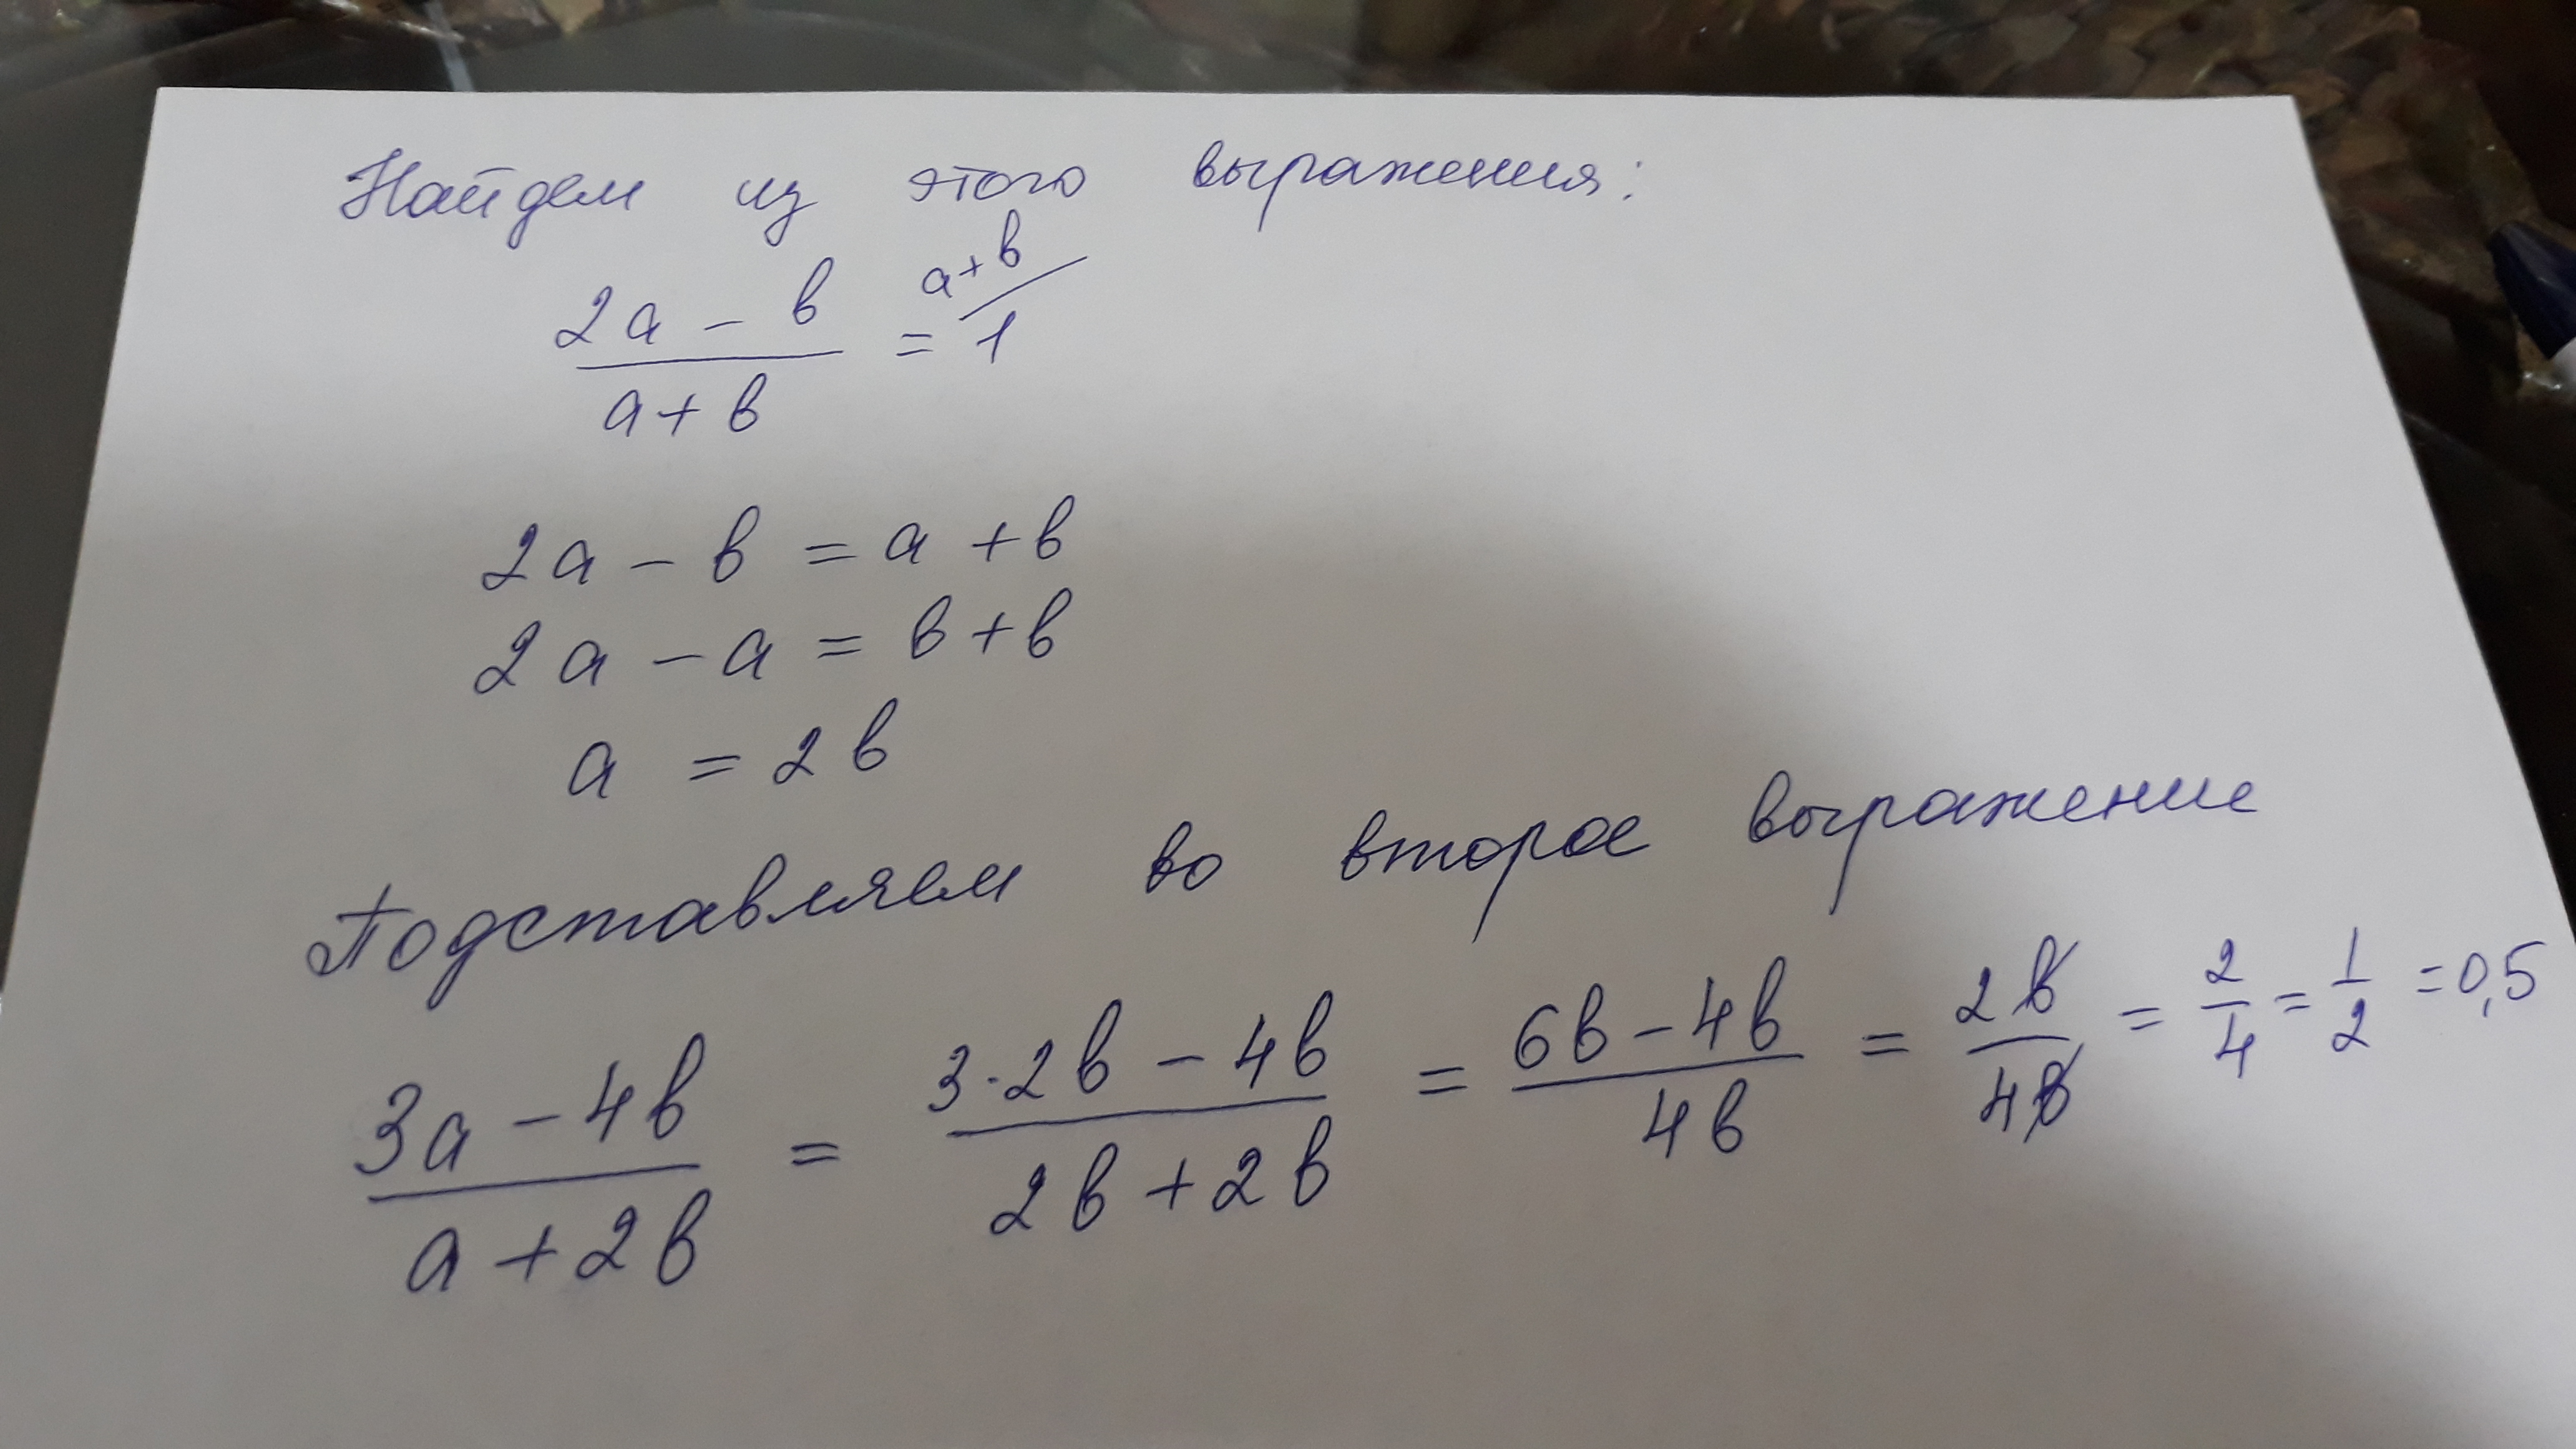 Найдем из этого выражения:
(2а - в)/(а + в) = 1 / а + в
2а - в = а + в
2а - а = в + в
а = 2в
Подставляем во второе выражение
(3а - 4в)/(а + 2в) = (3·2в - 4в)/(2в + 2в) = (6в - 4в)/4в = 2в/4в = 2/4 = 1/2 = 0,5